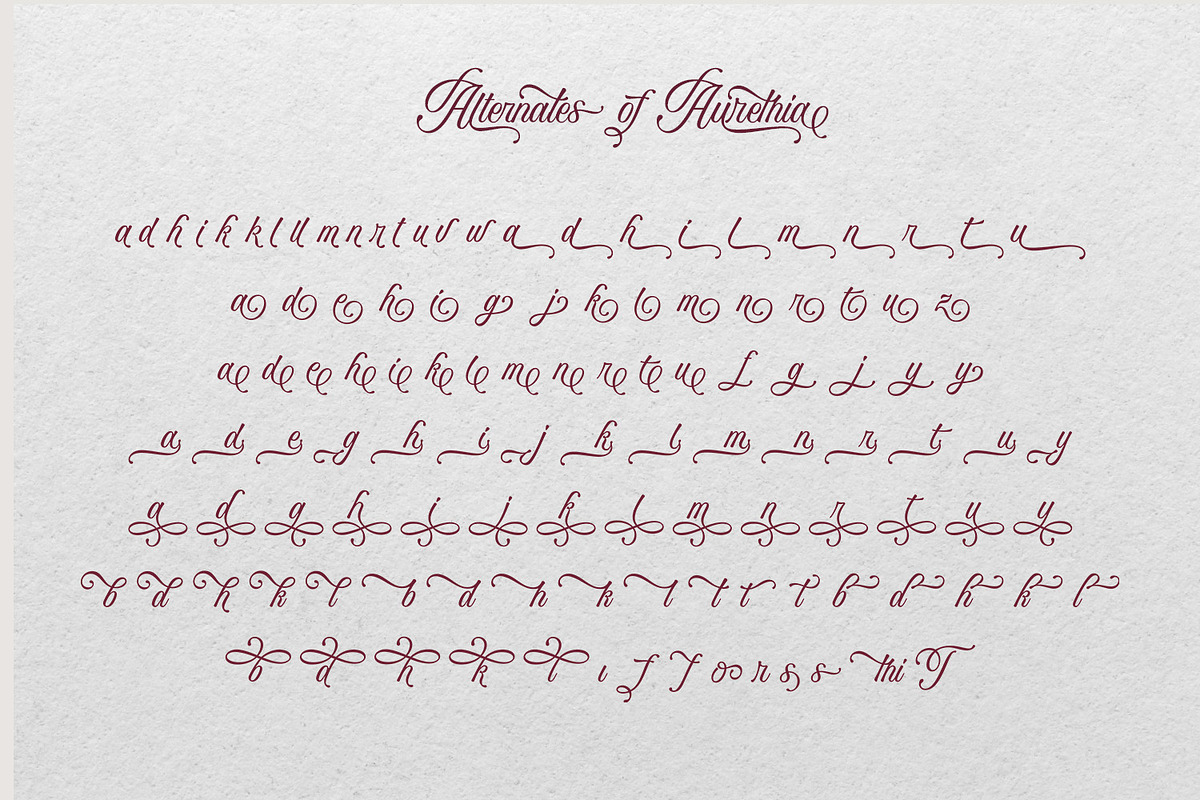 Alternates of Aurethia
a d h i k k l ll m n r t u v w a d h i l m n r t u
a d e h i g j k l m n r t u z
a d e e h i k l m n r t u f g j y y
a d e g h i j k l m n r t u y
a d g h i j k l m n r t u y
b d h k l b d h k l t t t b d h k l
b d h k l ı f f o r s s thi T